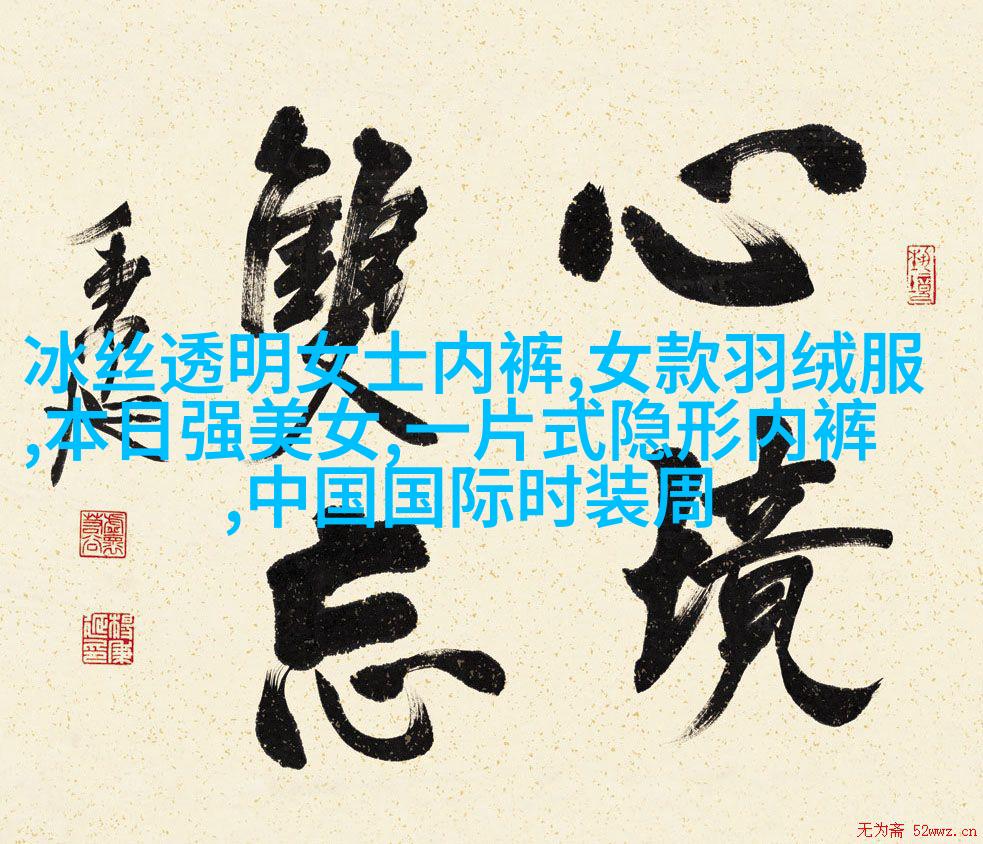 心境
雙忘
冰丝透明女士内裤,女款羽绒服
,本日强美女,一片式隐形内裤
,中国国际时装周
无为斋 52wwz.cn